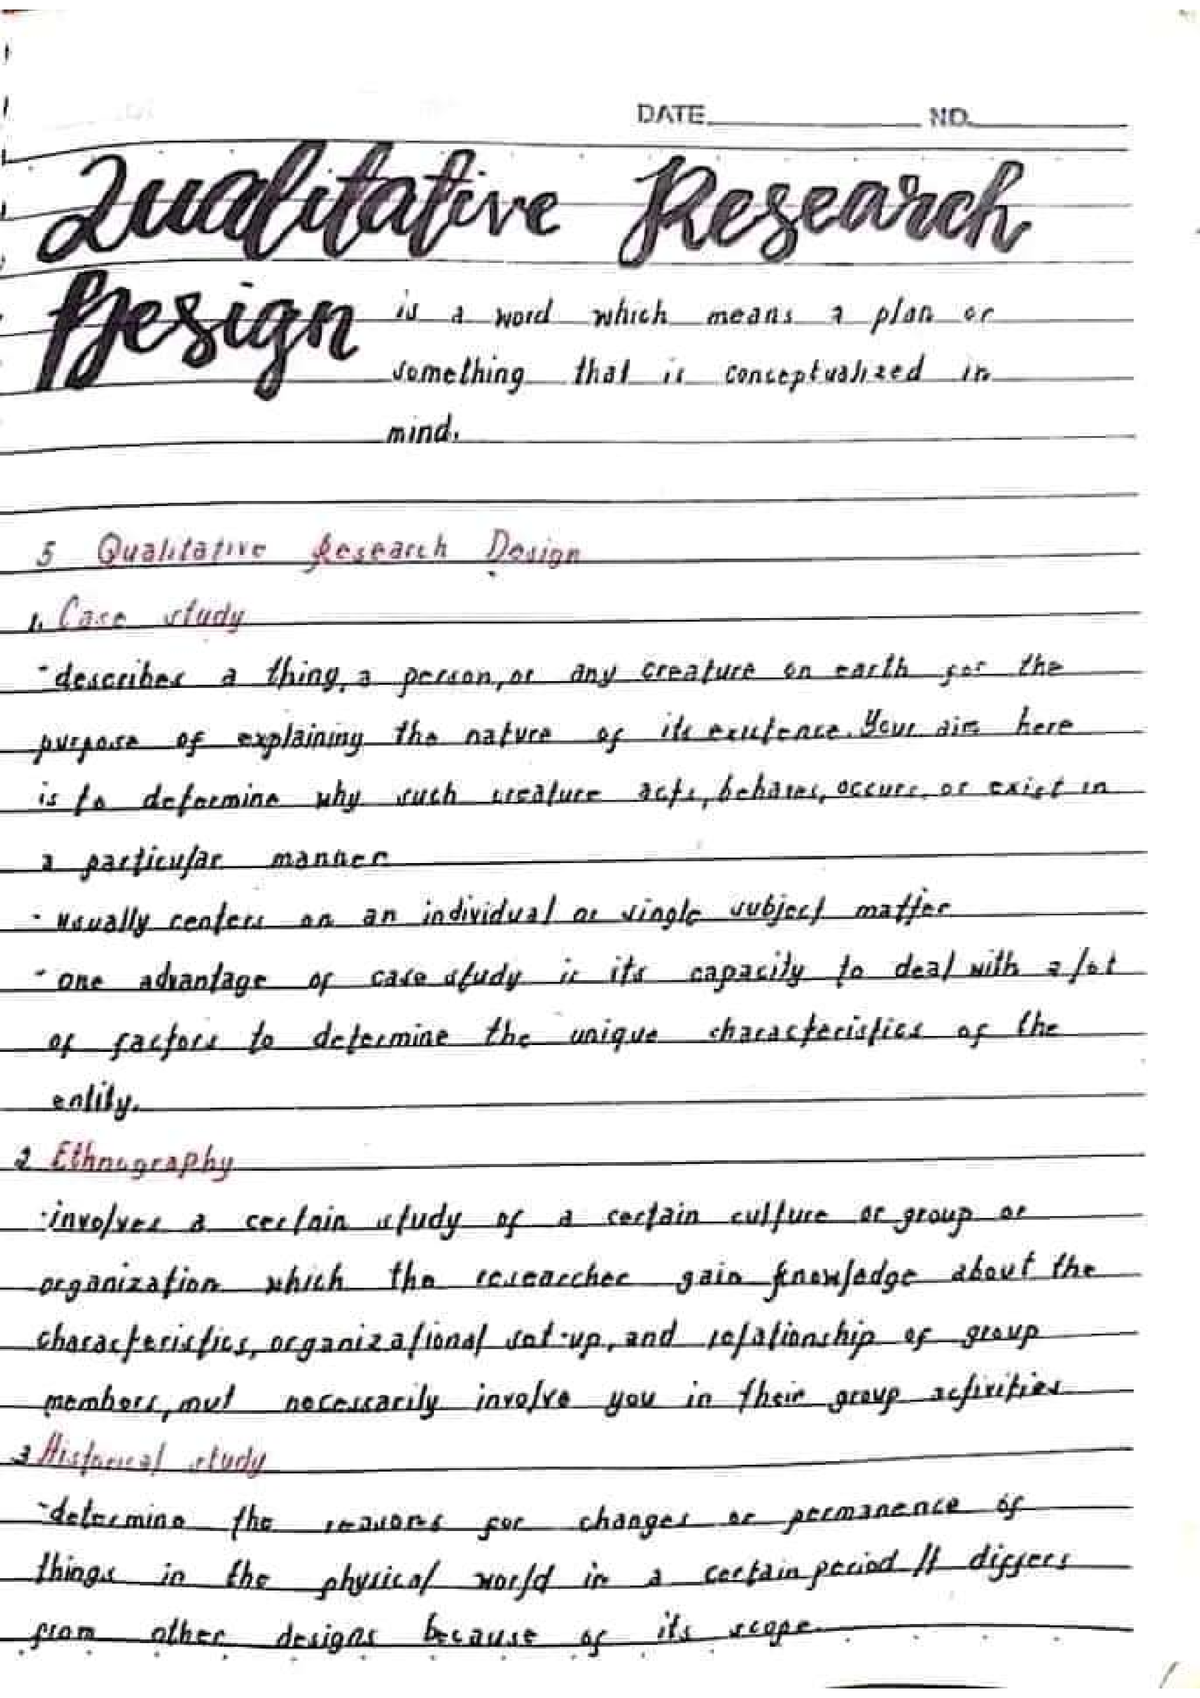 DATE NO.
Qualitative Research
Design is a word which means a plan or
something that is conceptualized in
mind.
5 Qualitative Research Design
1. Case study
- describes a thing, a person, or any creature on earth for the
purpose of explaining the nature of its existence. Your aim here
is to determine why such creature acts, behaves, occurs, or exist in
a particular manner
- usually centers on an individual or single subject matter
- one advantage of case study is its capacity to deal with a lot
of factors to determine the unique characteristics of the
entity.
2 Ethnography
- involves a certain study of a certain culture or group or
organization which the researcher gain knowledge about the
characteristics, organizational set-up, and relationship of group
members, mut necessarily involve you in their group activities
3 Historical study
- determine the reasons for changes or permanence of
things in the physical world in a certain period It differs
from other designs because of its scope